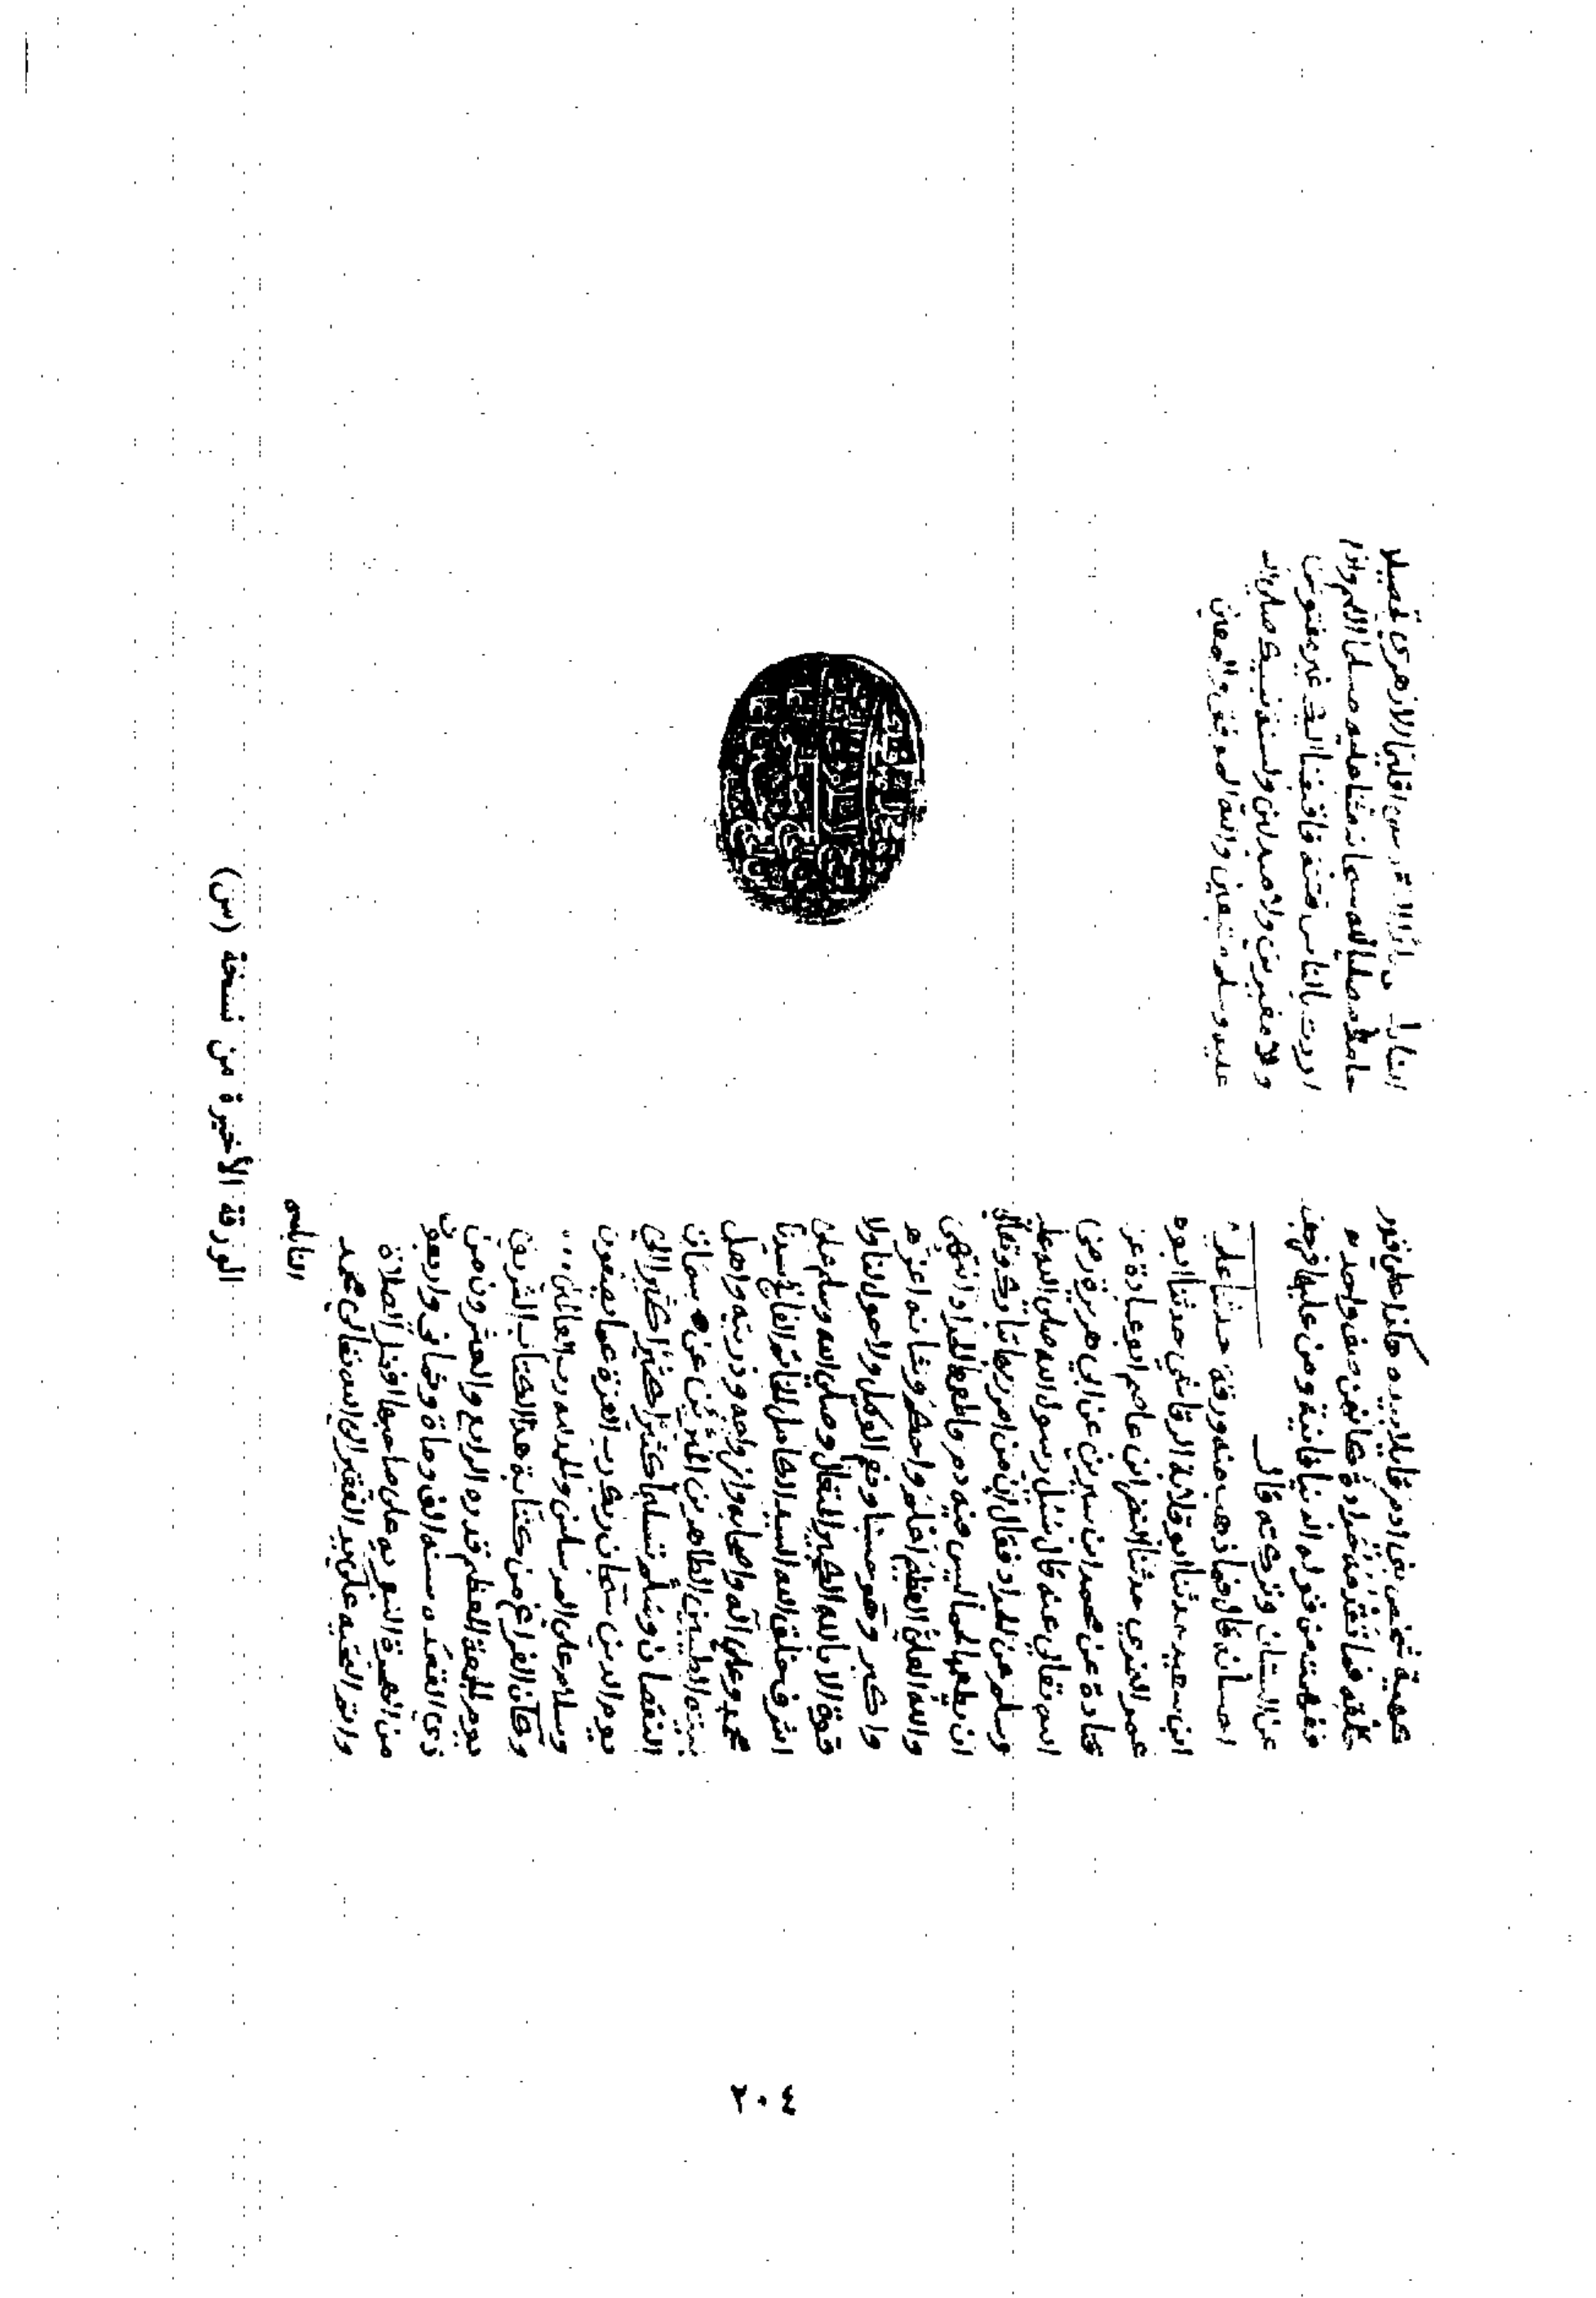 كهيئة شخص بني ادم قايلا بيده هكذا على فور
خلقته فما تقدمه جرادة كانهن صف واحد ه
ففهمت من قوله الدنيا فانية ومن عليها فرجعن
عن البستان وتركته قال
احسانه قال فيها ذهب منه ورقة حدثنا علي
ابن سعيد حدثنا ابو قلابة الرقاشي حدثنا ابوه
عمر الغزي حدثنا النضر ابن عاصم ابو عبادة عن
قتادة عن محمد ابن سيرين عن ابي هريرة رضي
الله تعالى عنه قال سئل رسول الله صلى الله عليه
وسلم عن الجراد فقال ان مريم سألت ربها تبارك وتعالى
ان يطعمها لحما ليس فيه دم فاطعمها الجراد انتهى
والله العلي العظيم اعلم واحكم وشانه اعز ه
واكبر وهو حسبنا ونعم الوكيل ولا حول لنا ولا
قوة الا بالله الكبير المتعال وصلى الله وسلم على
اشرف خلق الله السيد الكامل الفاتح سيدنا
محمد وعلى آله واصحابه وازواجه وذريته واهل
بيته الطيبين الطاهرين المبرئين عن سمات
النقصان وسلم تسليما كثيرا كثيرا كثيرا الى
يوم الدين سبحان ربك رب العزة عما يصفون
وسلام على المرسلين والحمد لله رب العالمين ...
وكان الفراغ من كتابة هذا الكتاب الشريف
يوم الجمعة المعظم قدره الرابع والعشرون من
ذي القعده سنة الف ومأة وثماني واربعون
من الهجرة النبويه على صاحبها افضل الصلاة
واتم التحيه على يد الفقير الى الله تعالى محمد
النابلسي
اقليما الازهري تحصيلا
حامدا مصليا لله سبحانه مثنا عليه مسلما اللهم واذا
اردت بالناس فتنة فاقبضنا اليك غير مفتونين
ولا مغيرين ولا مبدلين ولسنة نبيك صلى الله
عليه وسلم متبعين والله الموفق والمعين
الورقة الأخيرة من نسخة (س)
٢٠٤